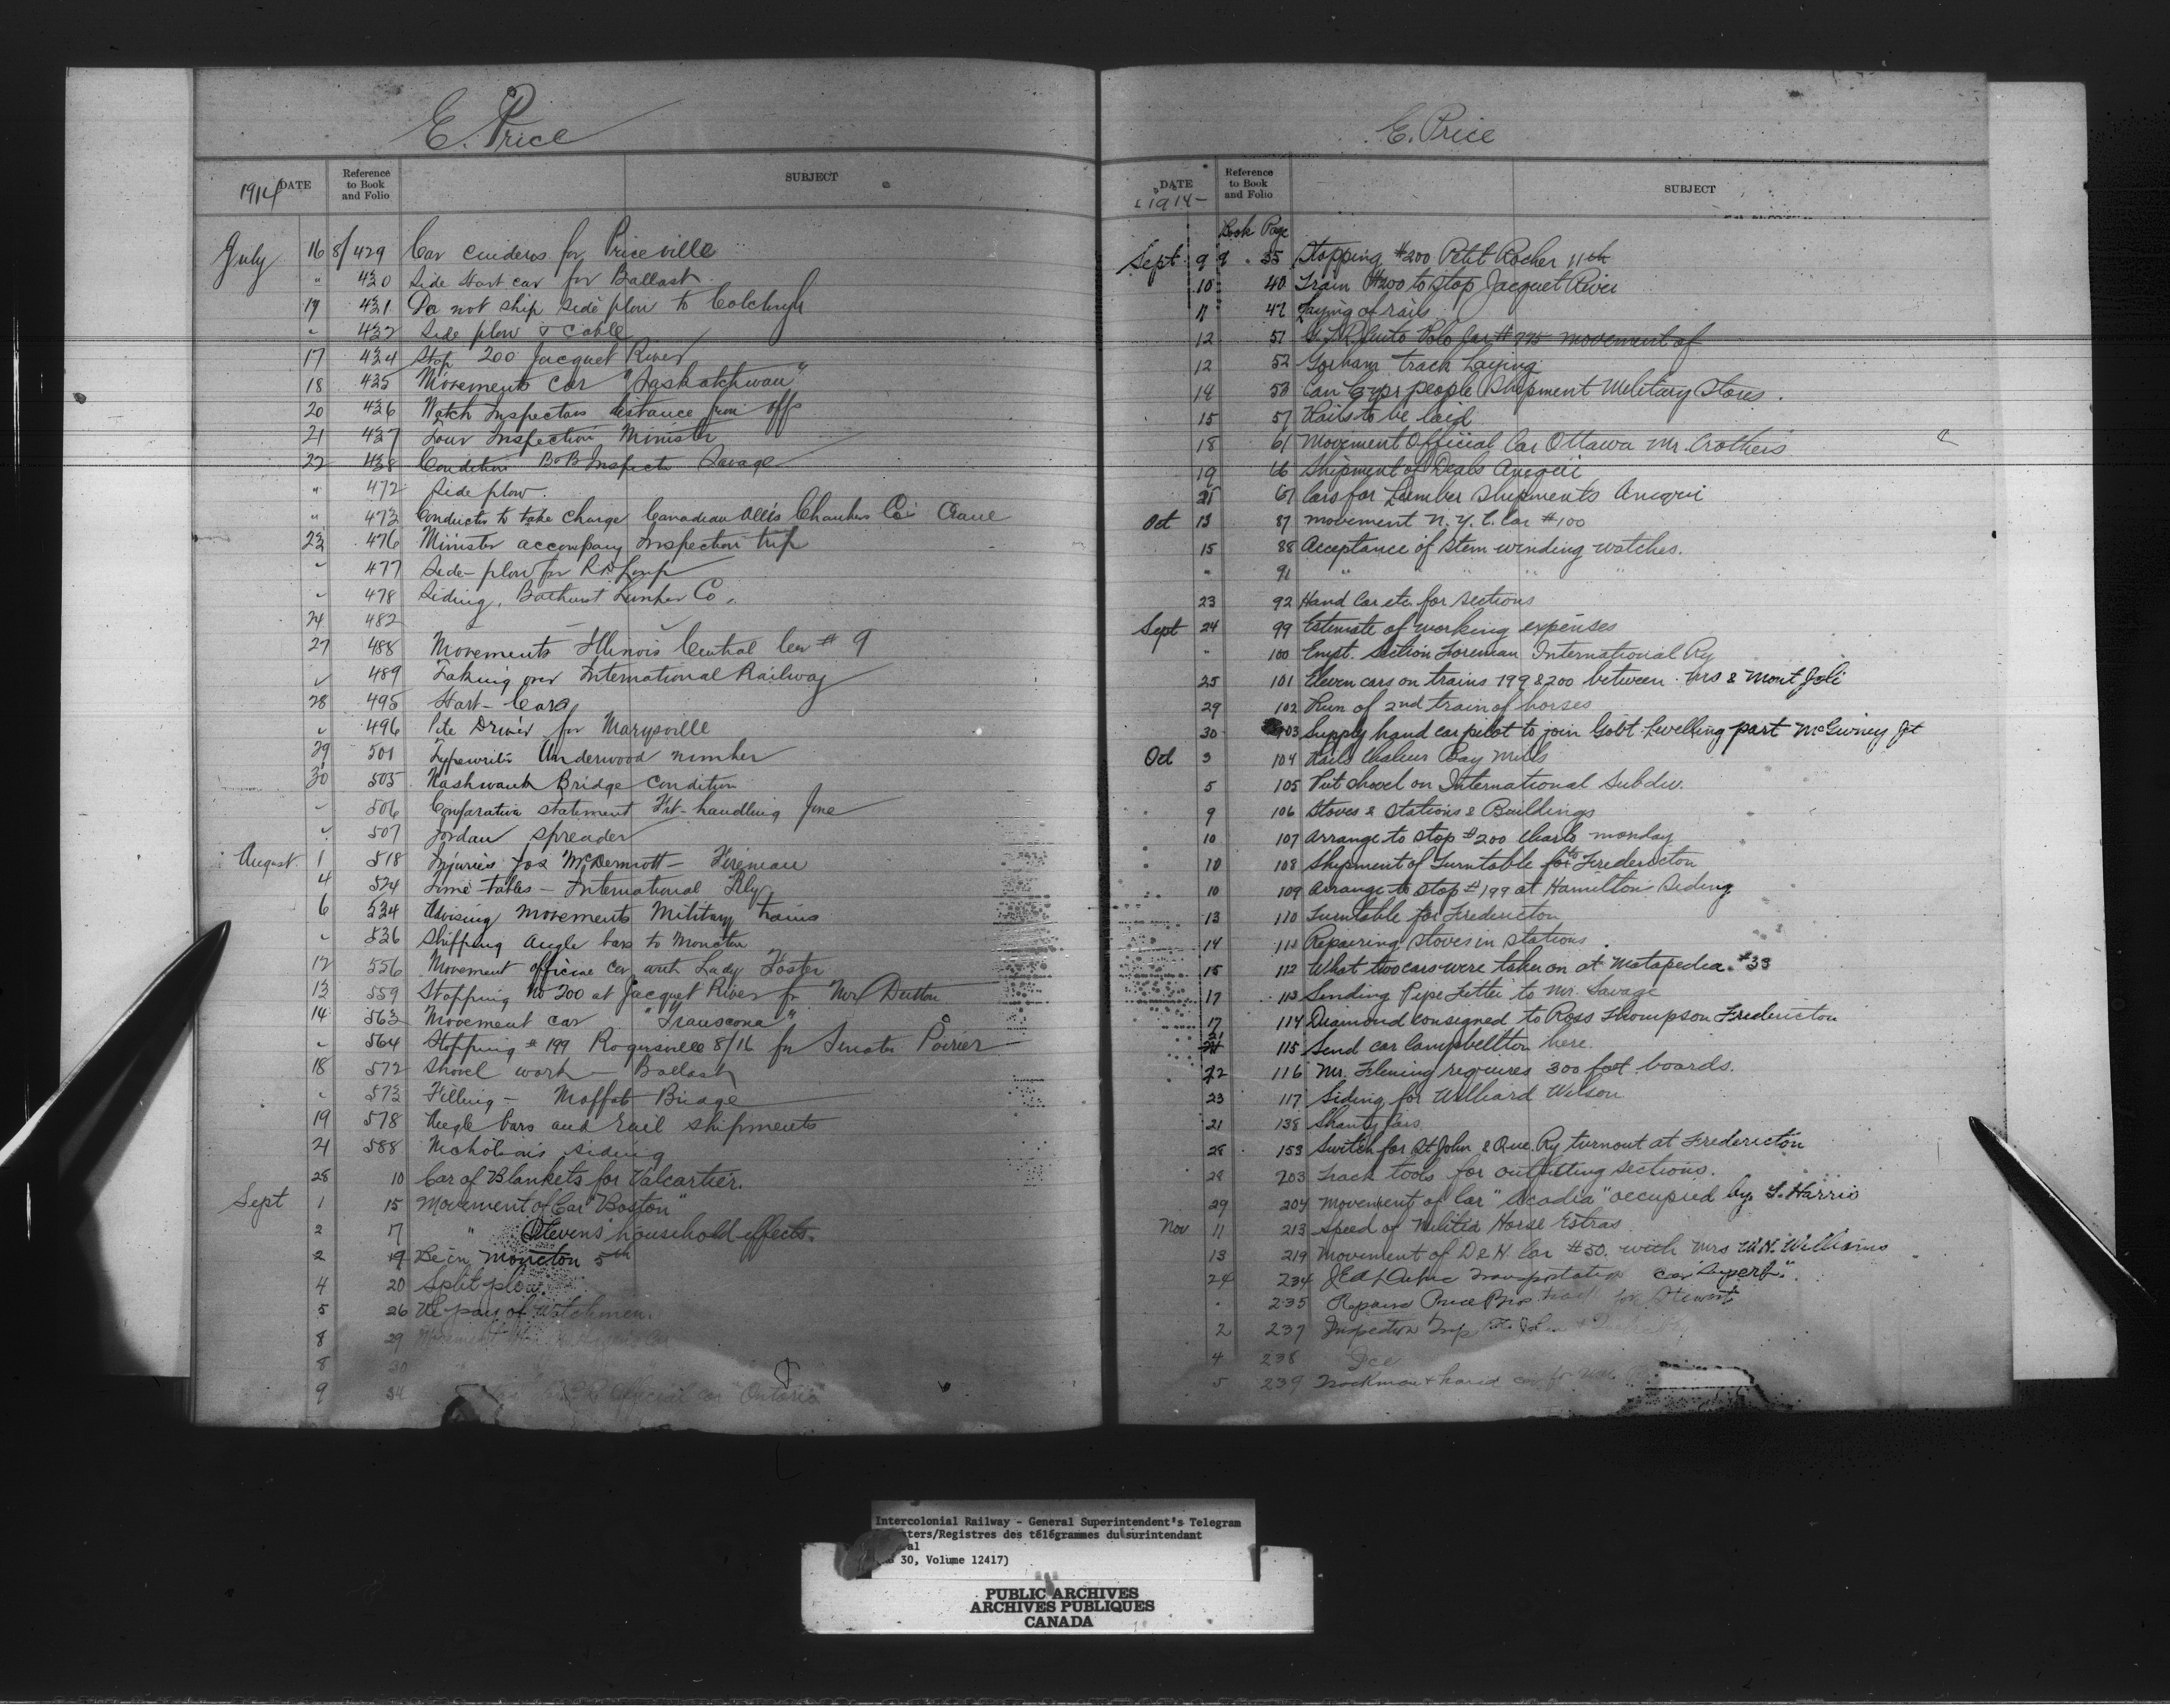 E. Price
1914 DATE
Reference to Book and Folio
SUBJECT
July 16 8/429 Car cinders for Priceville
" 430 Side Hart car for Ballast
17 431 Do not ship side plow to
" 432 Side plow & Cable
17 434 Stop 200 Jacquet River
18 435 Movements Car "Saskatchwan"
20 436 Watch Inspectors distance from offs
21 437 Tour Inspection Minister
22 438 Condition B&B Inspector Savage
" 472 Side plow.
" 473 Conductor to take charge Canadian Allis Chambers Co. Crane
23 476 Minister accompany Inspection trip
" 477 Side-plow for
" 478 Siding, Bathurst Lumber Co.
24 482
27 488 Movements Illinois Central Car # 9
" 489 Taking over International Railway
28 495 Hart-Cars
" 496 Pile Driver for Marysville
29 501 Typewriter Underwood number
30 505 Nashwauk Bridge condition
" 506 Comparative statement Frt-handling June
" 507 Jordan spreader
August 1 518 Injuries Jos McDermott - Fireman
4 524 Time-tables - International Rly
6 534 Advising movements Military trains
" 536 Shipping Angle bars to Moncton
12 556 Movement official car with Lady Foster
13 559 Stopping No 200 at Jacquet River for Mrs Dutton
14 563 Movement car "Transcona"
" 564 Stopping # 199 Rogersville 8/16 for Senator Poirier
18 572 Shovel work - Ballast
" 573 Filling - Moffat Bridge
19 578 Angle bars and rail shipments
21 588 siding
28 10 Car of Blankets for Valcartier.
Sept 1 15 Movement of Car "Boston"
2 17 " Stevens household effects.
2 19 Be in Moncton 5th
4 20 Split plow.
5 26 Re pay of Watchmen.
8 29 Movement
8 30
9 34 Official car "Ontario"
E. Price
DATE 1914-
Reference to Book and Folio
SUBJECT
Book Page
Sept 9 9 35 Stopping #200 Petit Rocher 11th
10 40 Train #200 to stop Jacquet River
11 47 Laying of rails
12 51 Auto Polo Car # 995 movement of
12 52 Gorham track Laying
14 53 people Shipment Military Stores.
15 57 Rails to be laid
18 61 Movement Official Car Ottawa Mr. Crothers
19 66 Shipment of Deals Amqui
21 67 Cars for Lumber Shipments Amqui
Oct 13 87 movement N.Y.C. Car #100
15 88 Acceptance of stem winding watches.
" 91 " " " "
23 92 Hand Car etc. for sections
Sept 24 99 Estimate of working expenses
" 100 Empt. Section Foreman International Ry
25 101 Eleven cars on trains 199 & 200 between & Mont Joli
29 102 Run of 2nd train of horses
30 103 Supply hand car pilot to join Gov't. Levelling part McGivney Jct
Oct 3 104 Rails Chaleur Bay Mills
5 105 Put shovel on International Subdiv.
9 106 Stoves & Stations & Buildings
10 107 Arrange to stop #200 Charlo monday
10 108 Shipment of Turntable for to Fredericton
10 109 Arrange to stop #199 at Hamilton Siding
13 110 Turntable for Fredericton
14 111 Repairing stoves in stations.
15 112 What two cars were taken on at Matapedia. #33
17 113 Sending Pipe Fitter to Mr. Savage
17 114 Diamond consigned to Ross Thompson Fredericton
21 115 Send car Campbellton here.
22 116 Mr. Fleming requires 300 feet boards.
23 117 Siding for Williard Wilson
21 138 Shanty Cars
28 153 Switch for St John & Que. Ry turnout at Fredericton
28 203 Track tools for outfitting sections.
29 204 Movement of Car "Acadia" occupied by L. Harris
Nov 11 213 Speed of Militia Horse Extras
13 219 Movement of D & H. Car #50. with Mrs W.H. Williams
24 234 Transportation car "Superb".
" 235 Repairs Price Bros for Stewart
2 237 Inspection Trip
4 238 Ice
5 239 Trackman & hand car for
Intercolonial Railway - General Superintendent's Telegram
ters/Registres des télégrammes du surintendant
al
30, Volume 12417)
PUBLIC ARCHIVES
ARCHIVES PUBLIQUES
CANADA